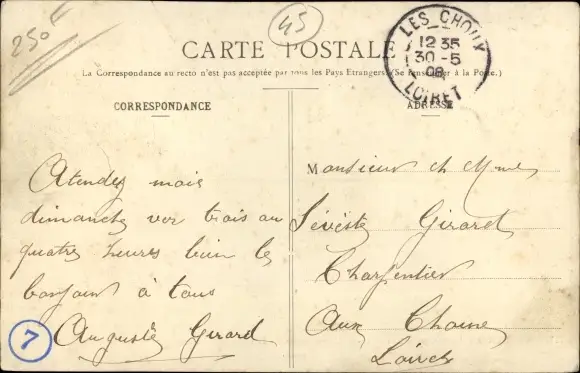 250
45
CARTE POSTALE
La Correspondance au recto n'est pas acceptée par tous les Pays Etrangers (Se renseigner à la Poste.)
LES CHOUX
12 35
30 -5
08
LOIRET
CORRESPONDANCE
Atendez mois
dimanche ver trois au
quatre heures bien le
bonjour à tous
Auguste Girard
7
ADRESSE
Monsieur et Mme
Girard
Charpentier
Aux Choux
Loiret